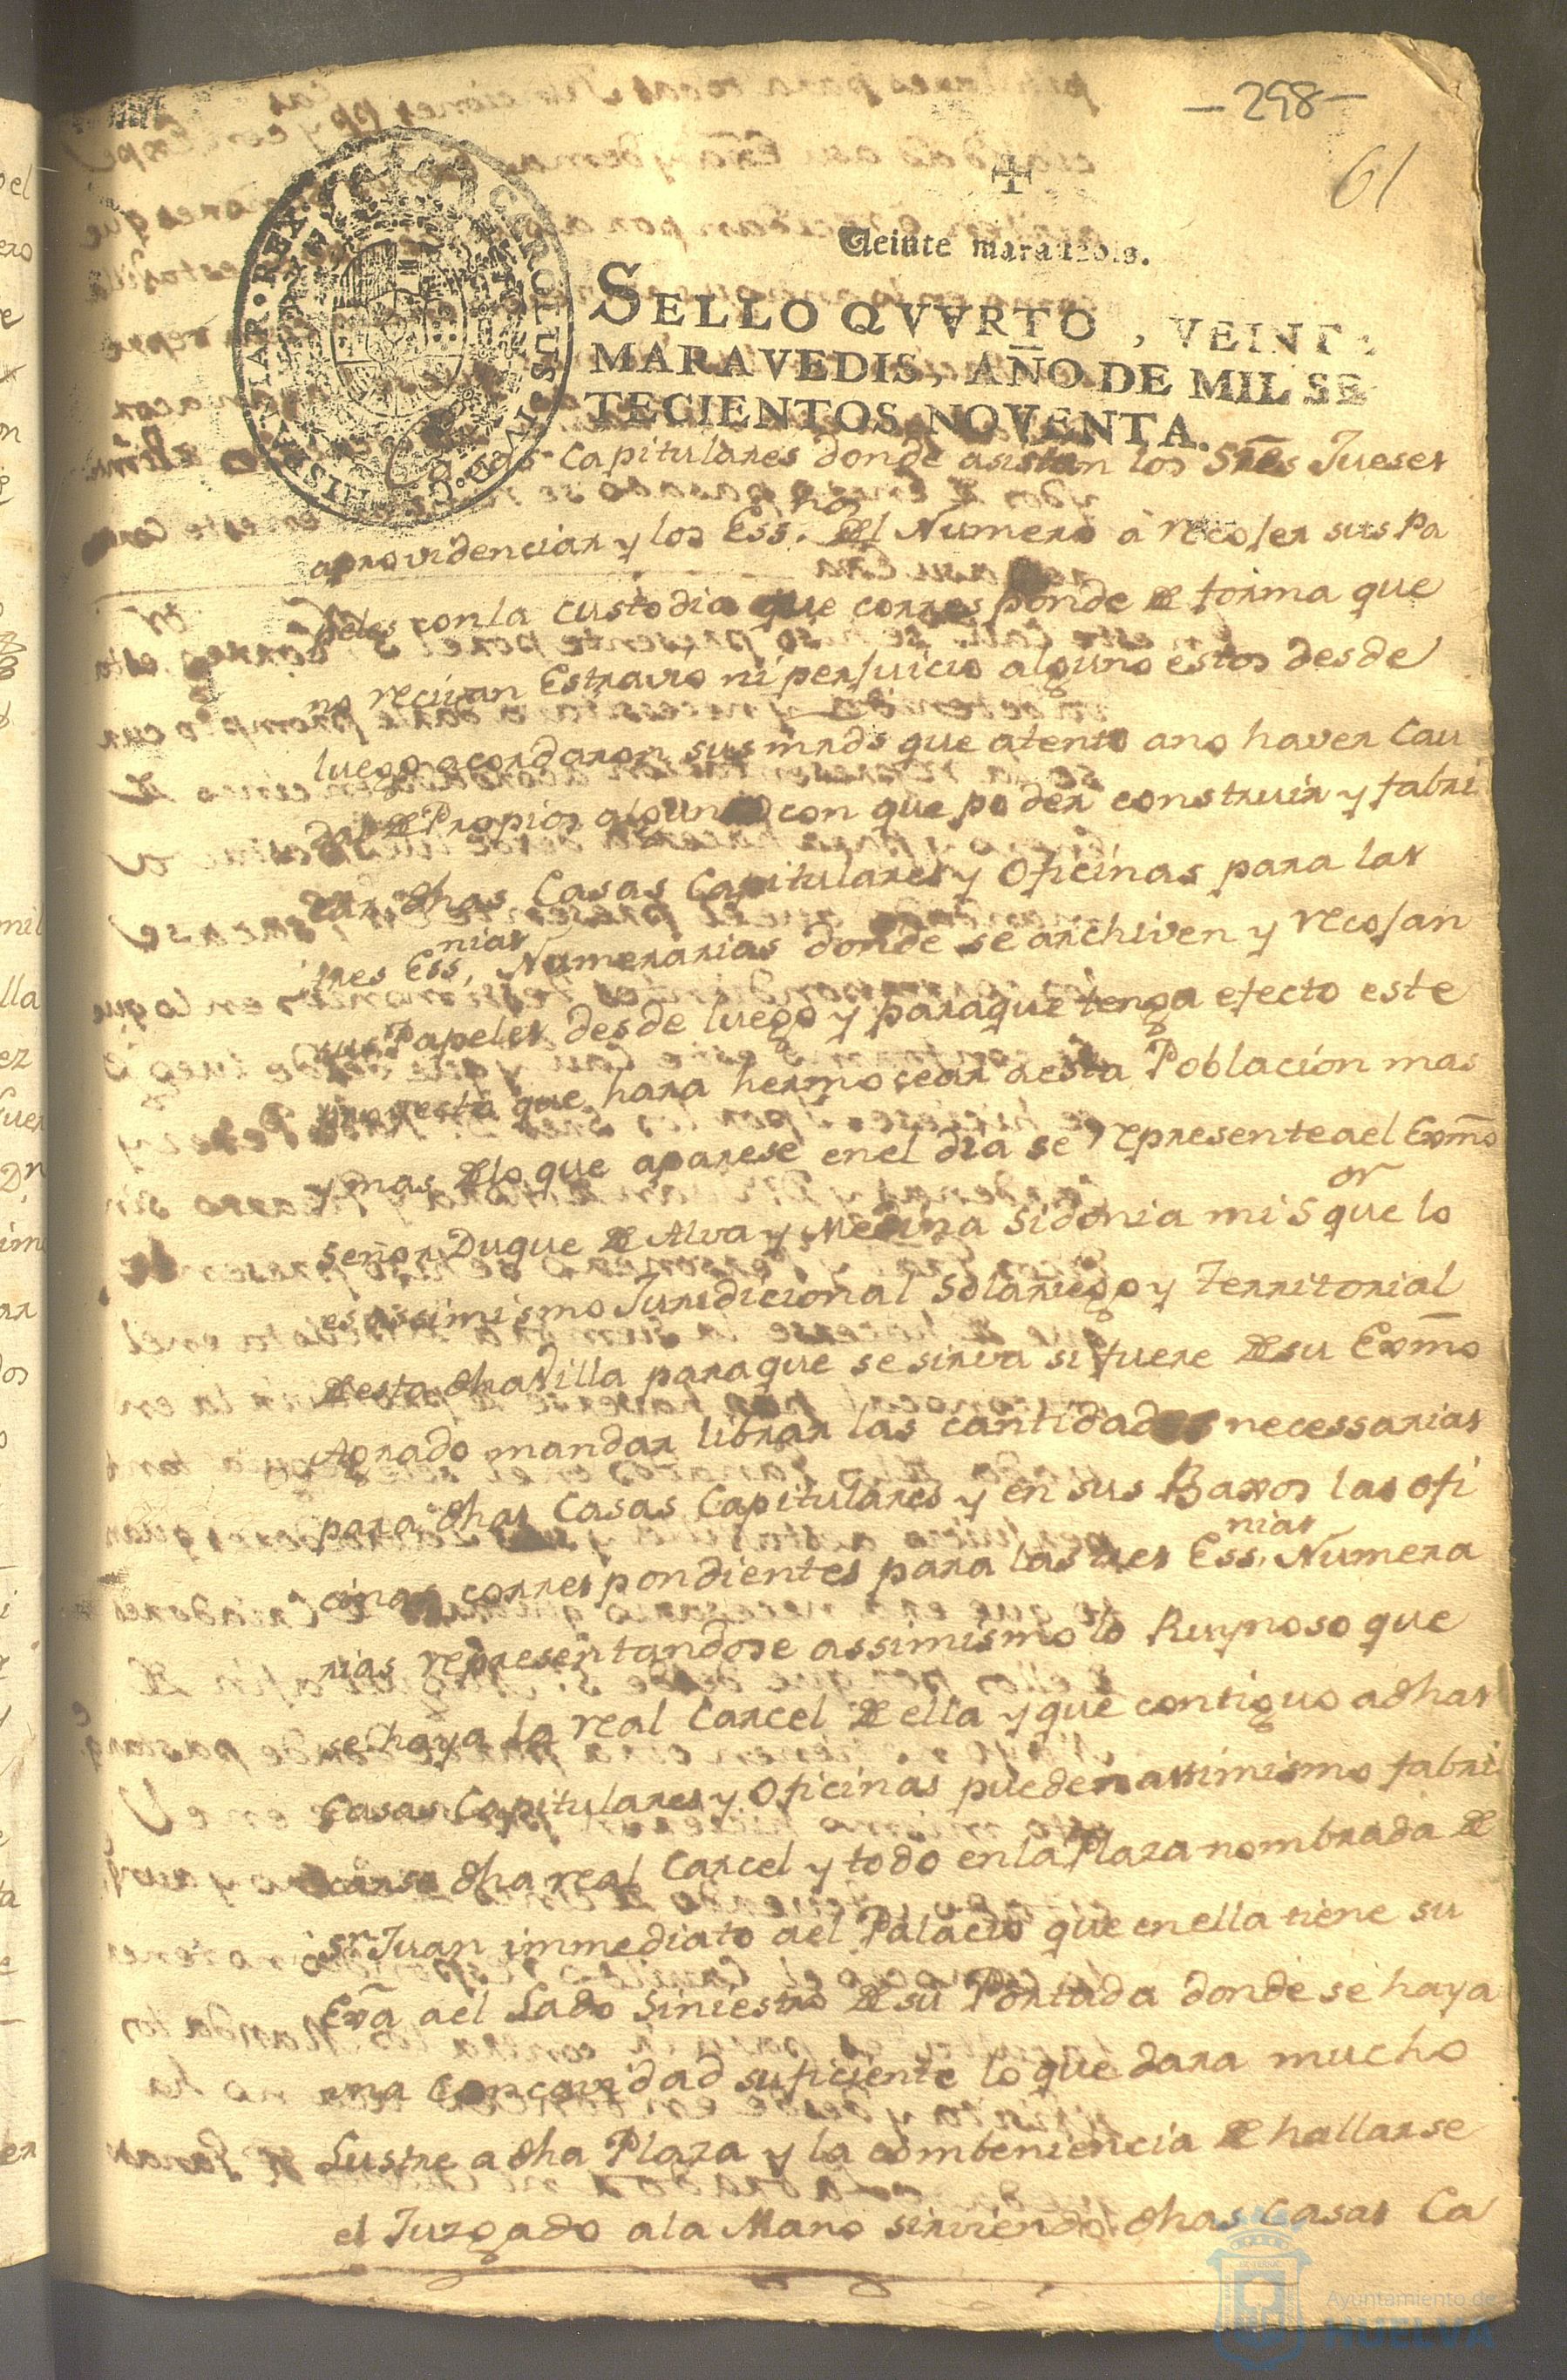 -298-
61
Veinte maravedis.
SELLO QVVRTO, VEINTE
MARAVEDIS, AÑO DE MIL SE
TECIENTOS NOVENTA.
CAROLUS IV D.G. HISPANIAR. REX
Casas Capitulares donde asistan los Sres Jueses
aprovidenciar y los Essnos. del Numero à recojer sus Pa
peles con la custodia que corresponde de forma que
no recivan Estravio ni perjuicio alguno estos desde
luego acordaron sus mrds que atento ano haver Cau
dal de Propios alguno con que poder construir y fabri
car dhas Casas Capitulares y Oficinas para las
tres Essnias. Numerarias donde se archiven y recojan
sus Papeles desde luego y paraque tenga efecto este
que hara hermosear aesta Poblacion mas
y mas de lo que aparese enel dia se represente ael Exmo
Señor Duque de Alva y Medina Sidonia mi Sor que lo
es assimismo Juridicional Solariego y Territorial
de esta dha Villa paraque se sirva si fuere de su Exmo
Agrado mandar librar las cantidades necessarias
para dhas Casas Capitulares y en sus Baxos las ofi
cinas correspondientes para las tres Essnias. Numera
rias representandose assimismo lo Ruynoso que
se haya la real Carcel de ella y que contiguo a dhas
Casas Capitulares y Oficinas pueden assimismo fabri
carse dha real Carcel y todo en la Plaza nombrada de
Sn Juan immediato ael Palacio que en ella tiene su
Exa ael Lado Siniestro de su Portada donde se haya
una concavidad suficiente lo que dara mucho
Lustre a dha Plaza y la combeniencia de hallarse
el Juzgado ala Mano sirviendo dhas Casas Ca
Ayuntamiento de
HUELVA